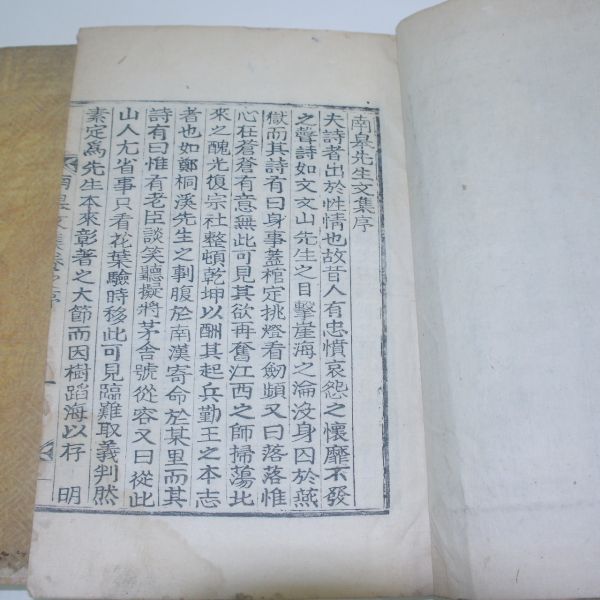 南皐先生文集序
夫詩者出於性情也故昔人有忠憤哀怨之懷靡不發
之聲詩如文文山先生之目擊崖海之淪沒身囚於燕
獄而其詩有曰身事蓋棺定挑燈看劒頻又曰落落惟
心在蒼蒼有意無此可見其欲再奮江西之師掃蕩北
來之醜光復宗社整頓乾坤以酬其起兵勤王之本志
者也如鄭桐溪先生之剚腹於南漢寄命於某里而其
詩有曰惟有老臣談笑聽擬將茅舍號從容又曰從此
山人尤省事只看花葉驗時移此可見臨難取義判然
素定爲先生本來彰著之大節而因樹蹈海以存 明
南皐文集卷之序